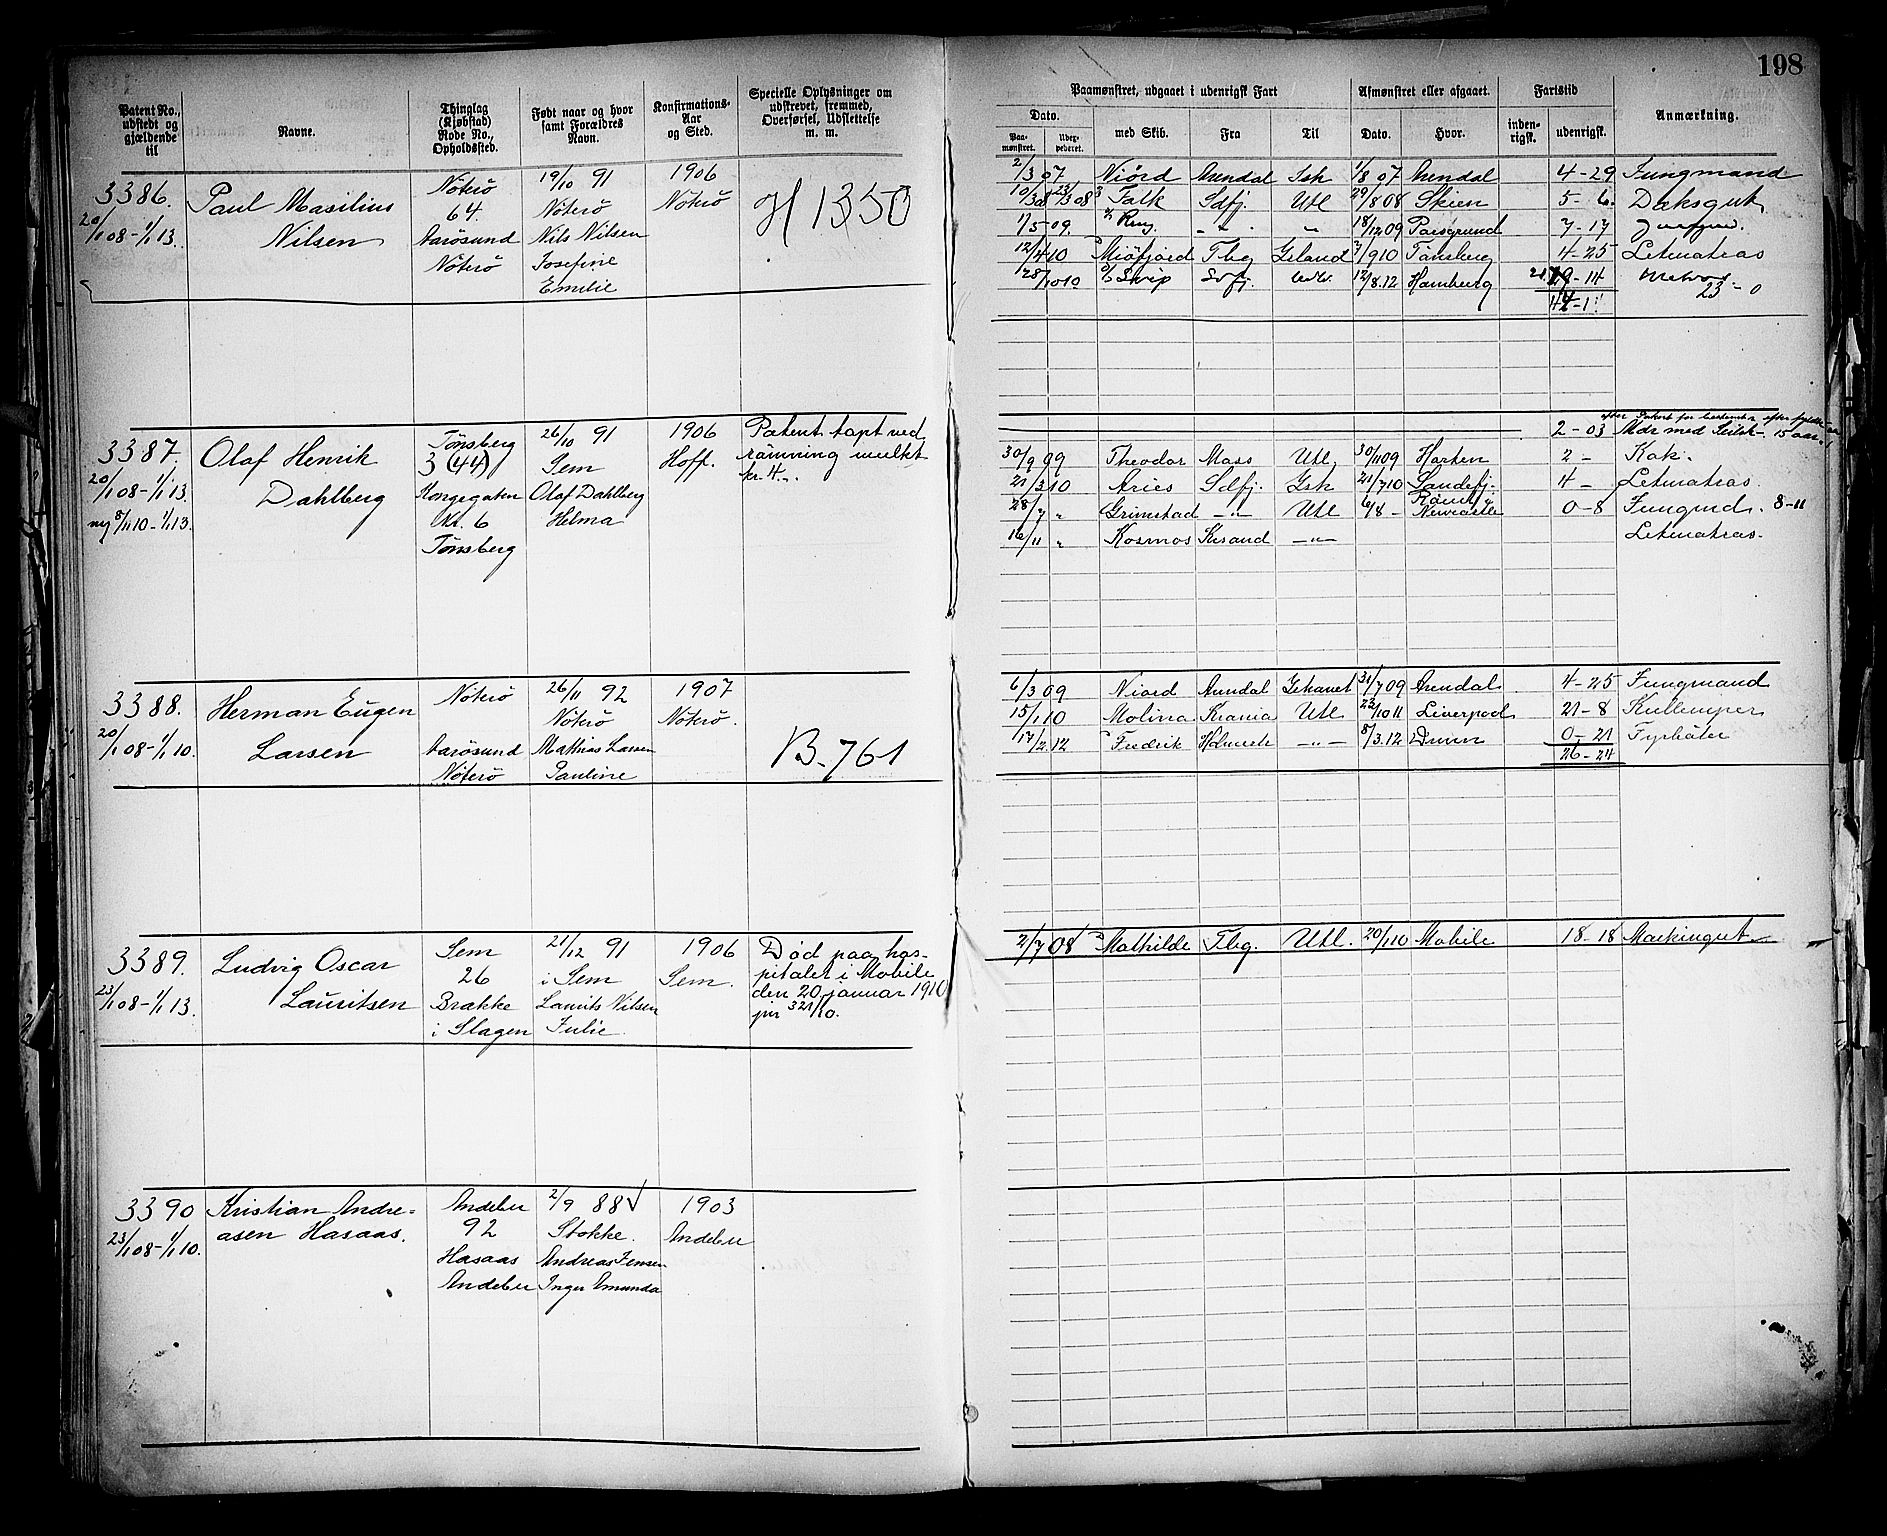 198
Patent No., udstedt og gjældende til
Navne.
Thinglag (Kjøbstad) Rode No., Opholdssted.
Født naar og hvor samt Forældres Navn.
Konfirmations-Aar og Sted.
Specielle Oplysninger om udskrevet, fremmed, Overførsel, Udslettelse m. m.
Paamønstret, udgaaet i udenrigsk Fart
Dato.
Paamønstret.
med Skib.
Fra
Til
Afmønstret eller afgaaet.
Dato.
Hvor.
Fartstid
indenrigsk.
udenrigsk.
Anmærkning.
3386.
20/1 08-1/1 13.
Paul Masilius
Nilsen
Nøterø
64.
Nøterø
19/10 91
Nøterø
Nils Nilsen
Josefine
Emilie
1906
Nøterø
H 1350
2/3 07 Niörd Arendal Isk 1/8 07 Arendal 4-29 Jungmand
Falk Sdfj. Utl 29/8 08 Skien 5-6. Dæksgut
1/5 09. Ring. -„- „ 18/12 09 Porsgrund 7-17
12/4 10 Miöfjord Tbg Island 3/9 10 Tönsberg 4-25 Letmatras
Sdfj. 12/8.12 Hamburg -14
23-0
3387.
20/1 08-1/1 13.
ny 8/11 10-1/1 13.
Olaf Henrik
Dahlberg
Tønsberg
3 (44)
Kongegaten
No. 6
Tønsberg
26/10 91
Sem
Olaf Dahlberg
Helma
1906
Hoff.
Patent tapt ved
rømning mulkt
kr. 4.-.
2-03 Mdr med Seilsk- 15 aar.
30/9 09 Theodor Moss Utl 30/11 09 Horten 2- Kok.
21/3 10 Aries Sdfj. Isk 21/7 10 Sandefj. 4- Letmatras.
28/7 „ Grimstad -„- Utl 6/8 - Rømt i Newcastle 0-8 Jungmd. 8-11
16/11 „ Kosmos Krsand -„- Letmatras.
3388.
20/1 08-1/1 10.
Herman Eugen
Larsen
Nøterø
Nøterø
26/11 92
Nøterø
Mathias Larsen
Pauline
1907
Nøterø.
B-761
6/3 09 Niord Arendal Ishavet 31/7 09 Arendal 4-25 Jungmand
15/1 10 Molina Krania Utl 22/10 11 Liverpool 21-8 Kullemper
17/2 12 Fredrik -„- 8/3.12 0-21 Fyrbøter
26-24
3389.
23/1 08-1/1 13.
Ludvig Oscar
Lauritsen
Sem
26
Brakke
i Slagen
21/12 91
i Sem
Laurits Nilsen
Julie.
1906
Sem.
Død paa hos-
pitalet i Mobile
den 20 januar 1910
jnr 321/10.
2/7 08 Mathilde Tbg. Utl. 20/1 10 Mobile 18-18 Maskingut
3390
23/1 08-1/1 10.
Kristian Andre-
asen Hasaas.
Andebu
92
Hasaas
Andebu
2/9 88 √
Stokke.
Andreas Jensen
Inger Amunda
1903
Andebu